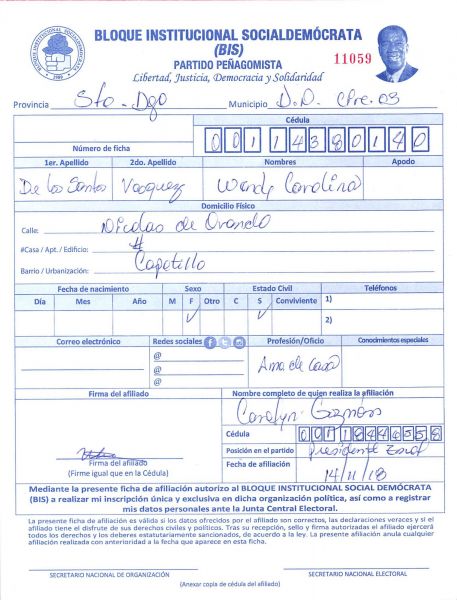 BLOQUE INSTITUCIONAL SOCIALDEMÓCRATA
(BIS)
PARTIDO PEÑAGOMISTA
11059
Libertad, Justicia, Democracia y Solidaridad
Provincia Sto - Dgo Municipio D.N. Cfre. 03
Cédula
Número de ficha 00114380140
1er. Apellido 2do. Apellido Nombres Apodo
De los Santos Vasquez Wendy Carolina
Domicilio Físico
Calle: Nicolas de Ovando
#Casa / Apt. / Edificio: #
Barrio / Urbanización: Capotillo
Fecha de nacimiento Sexo Estado Civil Teléfonos
Día Mes Año M F Otro C S Conviviente 1)
2)
Correo electrónico Redes sociales Profesión/Oficio Conocimientos especiales
@
@
@
Ama de Casa
Firma del afiliado Nombre completo de quien realiza la afiliación
Carolyn Guzmán
Cédula 00118444558
Firma del afiliado Posición en el partido Presidente Zonal
(Firme igual que en la Cédula) Fecha de afiliación 14/11/18
Mediante la presente ficha de afiliación autorizo al BLOQUE INSTITUCIONAL SOCIAL DEMÓCRATA
(BIS) a realizar mi inscripción única y exclusiva en dicha organización política, así como a registrar
mis datos personales ante la Junta Central Electoral.
La presente ficha de afiliación es válida si los datos ofrecidos por el afiliado son correctos, las declaraciones veraces y si el
afiliado tiene el disfrute de sus derechos civiles y políticos. Tras su recepción, sello y firma autorizadas el afiliado ejercerá
todos los derechos y los deberes estatutariamente sancionados, de acuerdo a la ley. La presente afiliación anula cualquier
afiliación realizada con anterioridad a la fecha que aparece en esta ficha.
SECRETARIO NACIONAL DE ORGANIZACIÓN SECRETARIO NACIONAL ELECTORAL
(Anexar copia de cédula del afiliado)